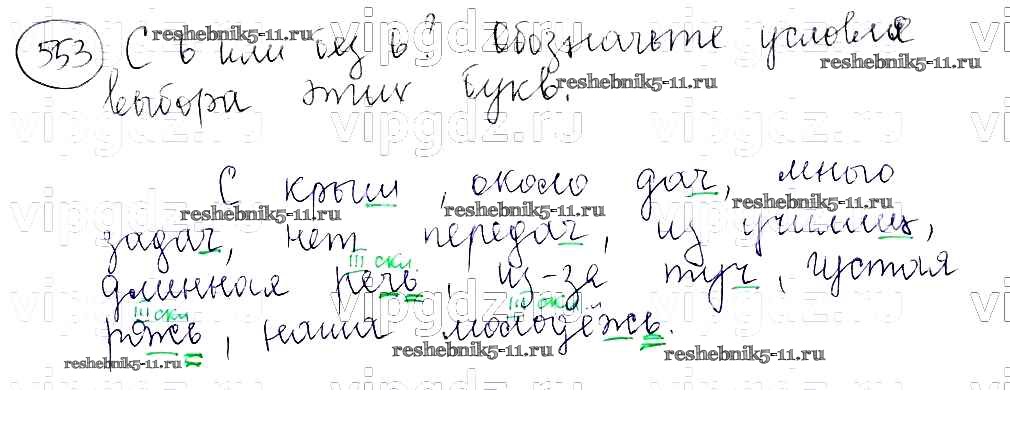 553 С ь или без ь? Обозначьте условия
выбора этих букв.
С крыш, около дач, много
задач, нет передач, из училищ,
III скл.
длинная речь, из-за туч, густая
III скл. III скл.
рожь, наша молодёжь.
reshebnik5-11.ru
vipgdz.ru